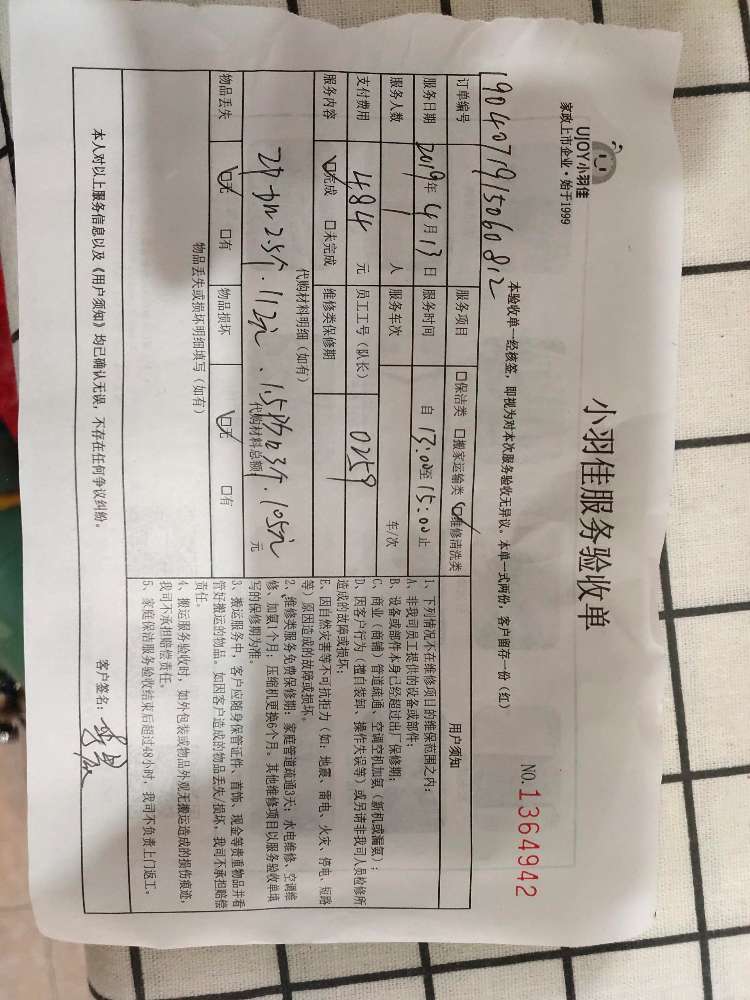 UJOY小羽佳
家政上市企业·始于1999
小羽佳服务验收单
NO.1364942
本验收单一经核签，即视为对本次服务验收无异议。本单一式两份，客户留存一份（红）
订单编号 190407191506081 2 服务项目 □保洁类 □搬家运输类 ☑维修清洗类
服务日期 2019年4月13日 服务时间 自13:00至15:00止
服务人数 1 人 服务车次 车/次
支付费用 484 元 员工工号（队长） 0259
服务内容 ☑完成 □未完成 维修类保修期
代购材料明细（如有）
112元 105元
代购材料总额 元
物品丢失 ☑无 □有 物品损坏 ☑无 □有
物品丢失或损坏明细填写（如有）
用户须知
1、下列情况不在维修项目的维保范围之内：
A、非我司员工提供的设备或部件；
B、设备或部件本身已经超过出厂保修期；
C、商业（商铺）管道疏通、空调空机加氨（新机或漏氨）；
D、因客户行为（擅自装卸、操作失误等）或另请非我司人员检修所
造成的故障或损坏；
E、因自然灾害等不可抗拒力（如：地震、雷电、火灾、停电、短路
等）原因造成的故障或损坏。
2、维修类服务免费保修期：家庭管道疏通3天；水电维修、空调维
修、加氨1个月；压缩机更换6个月。其他维修项目以服务验收单填
写的保修期为准。
3、搬运服务中，客户应随身保管证件、首饰、现金等贵重物品并看
管好搬运的物品。如因客户造成的物品丢失/损坏，我司不承担赔偿
责任。
4、搬运服务验收时，如外包装或物品外观无搬运造成的损伤痕迹，
我司不承担赔偿责任。
5、家庭保洁服务验收结束后超过48小时，我司不负责上门返工。
本人对以上服务信息以及《用户须知》均已确认无误，不存在任何争议纠纷。
客户签名：